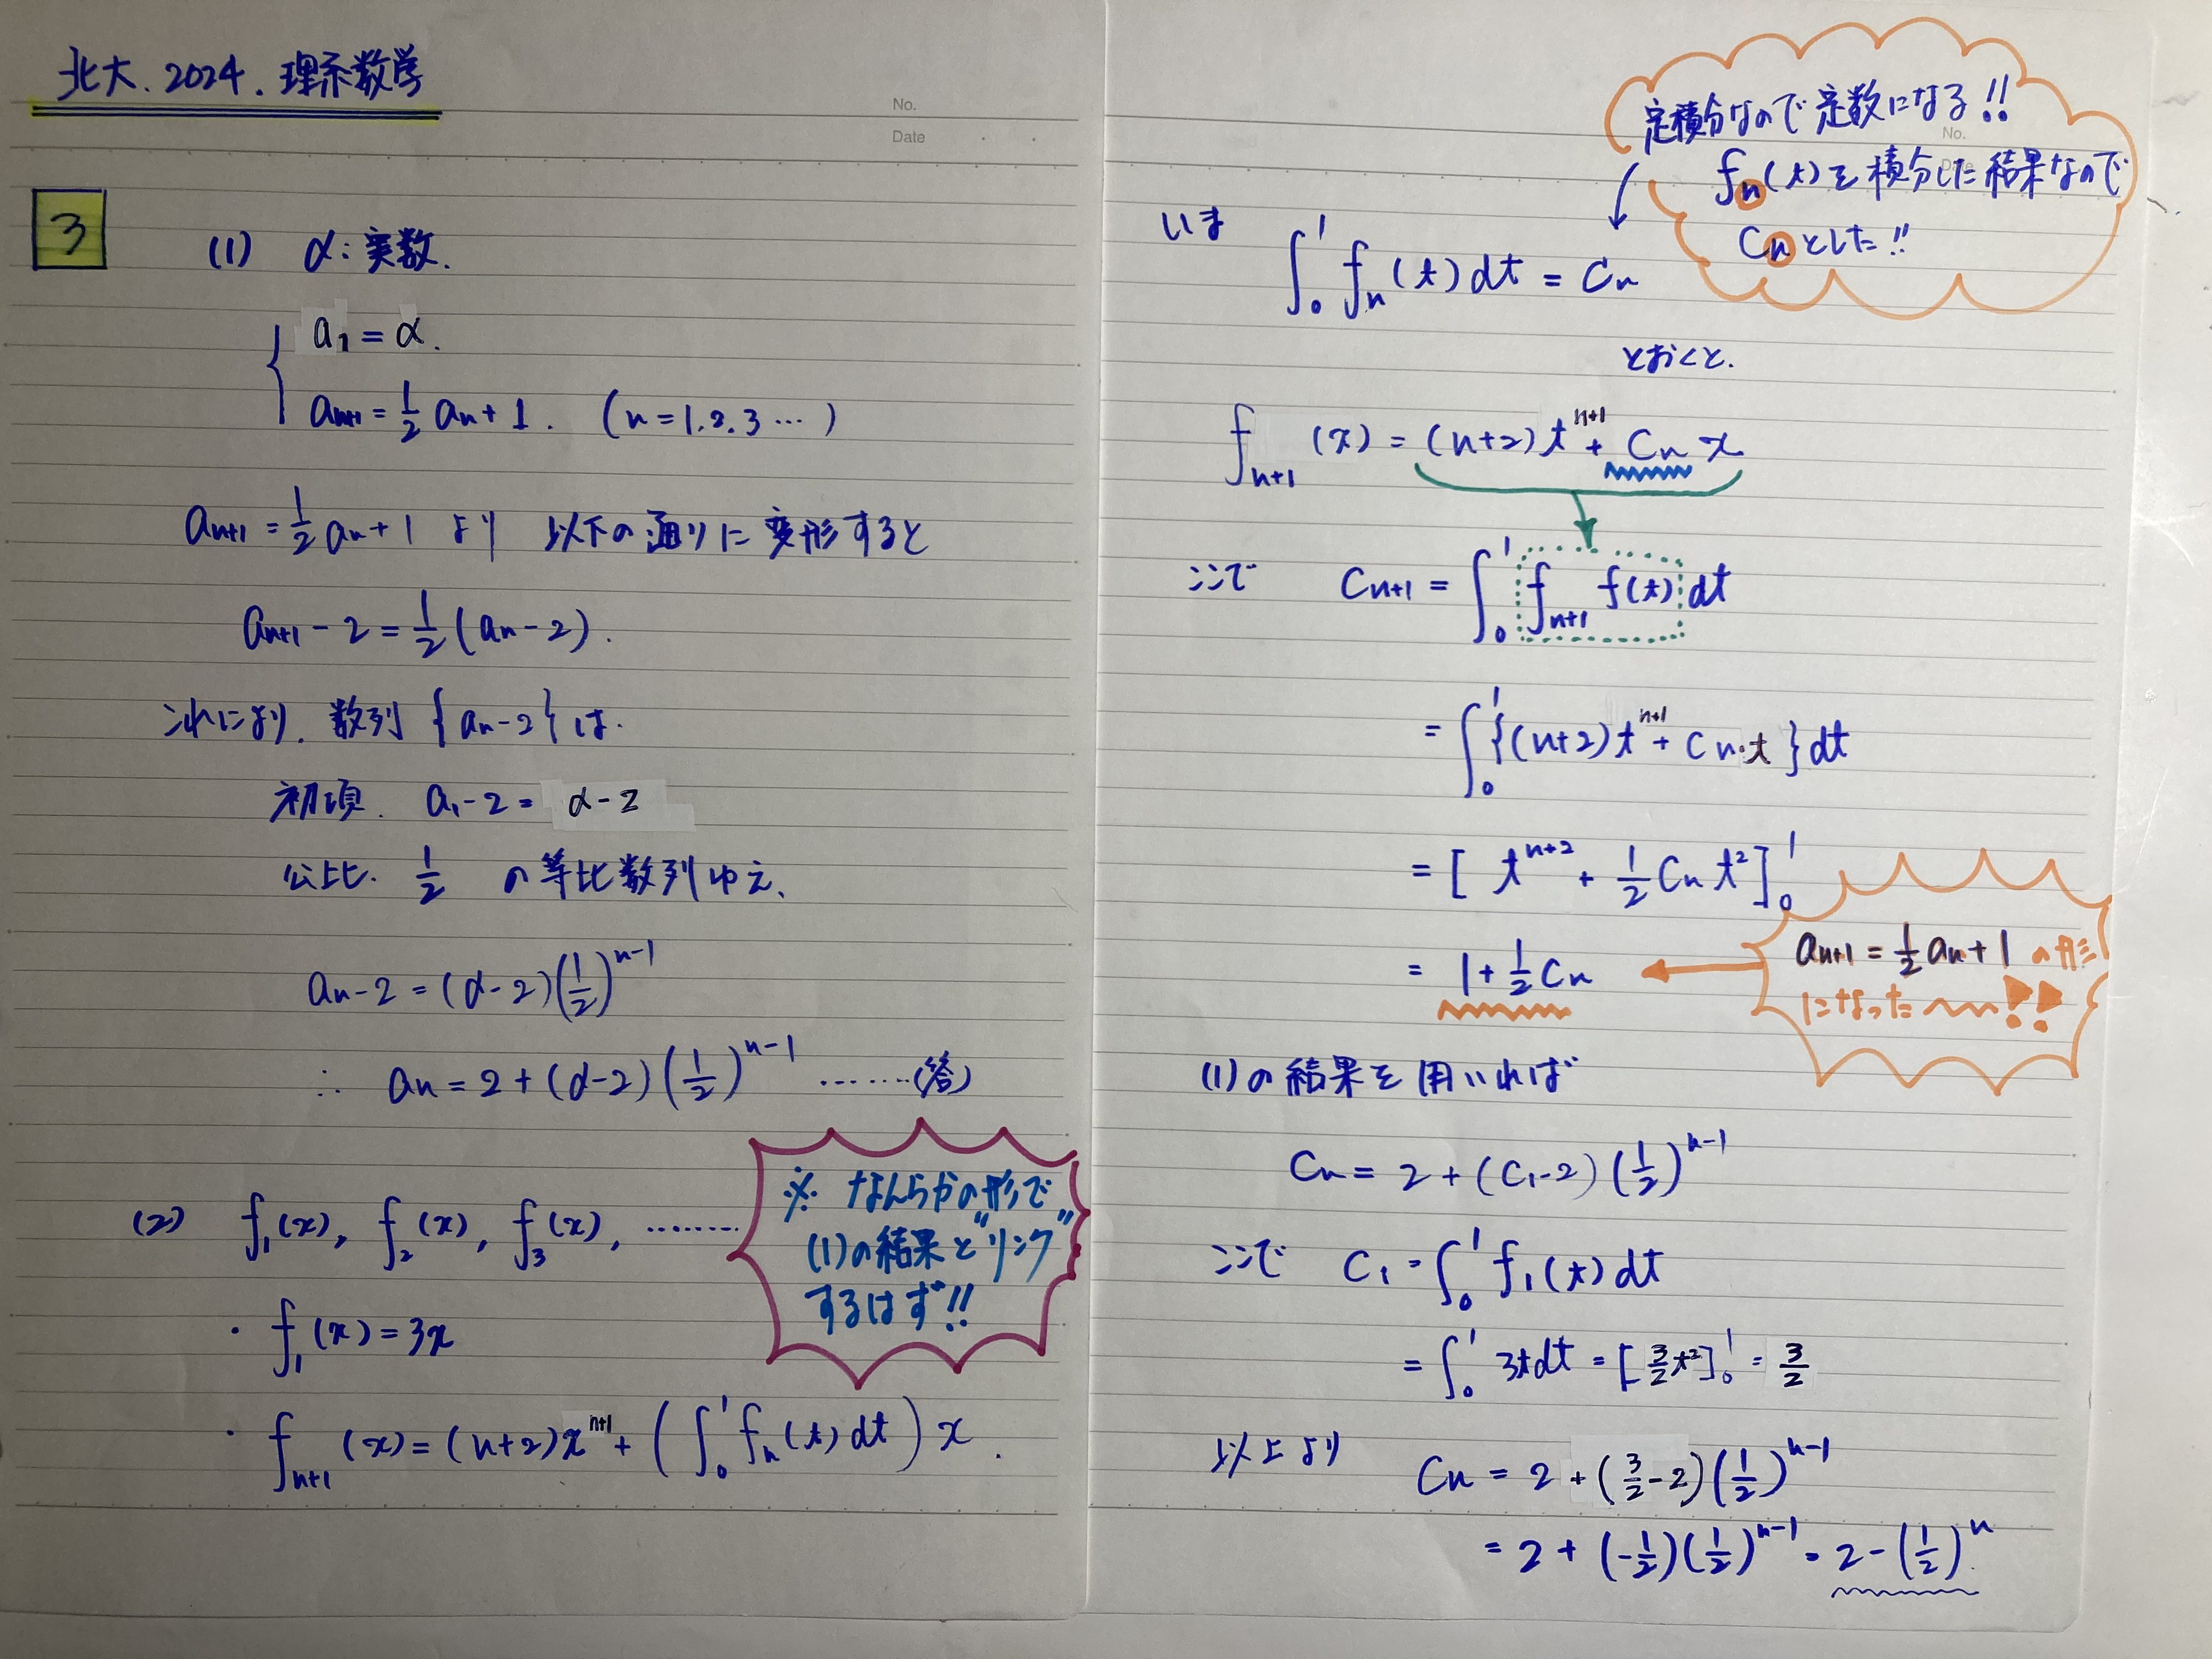 北大. 2024. 理系数学
No.
Date
3
(1) α:実数.
a₁ = α.
aₙ₊₁ = 1/2 aₙ + 1. (n = 1.2.3 …)
aₙ₊₁ = 1/2 aₙ + 1 より 以下の通りに変形すると
aₙ₊₁ - 2 = 1/2 (aₙ - 2).
これにより. 数列 {aₙ - 2} は.
初項. a₁ - 2 = α - 2
公比. 1/2 の等比数列ゆえ、
aₙ - 2 = (α - 2)(1/2)ⁿ⁻¹
∴ aₙ = 2 + (α - 2)(1/2)ⁿ⁻¹ ……(答)
(2) f₁(x), f₂(x), f₃(x), ………
※ なんらかの形で
(1)の結果と"リンク"
するはず!!
・ f₁(x) = 3x
・ fₙ₊₁(x) = (n+2)xⁿ⁺¹ + (∫₀¹ fₙ(t) dt) x.
No.
Date
定積分なので定数になる!!
fₙ(t)を積分した結果なので
Cₙとした!!
いま ∫₀¹ fₙ(t) dt = Cₙ
とおくと.
fₙ₊₁(x) = (n+2)tⁿ⁺¹ + Cₙ x
ここで Cₙ₊₁ = ∫₀¹ fₙ₊₁ f(t) dt
= ∫₀¹ {(n+2)tⁿ⁺¹ + Cₙ・t} dt
= [ tⁿ⁺² + 1/2 Cₙ t² ]₀¹
= 1 + 1/2 Cₙ
aₙ₊₁ = 1/2 aₙ + 1 の形
になった〜〜!!
(1)の結果を用いれば
Cₙ = 2 + (C₁ - 2)(1/2)ⁿ⁻¹
ここで C₁ = ∫₀¹ f₁(t) dt
= ∫₀¹ 3t dt = [3/2 t²]₀¹ = 3/2
以上より Cₙ = 2 + (3/2 - 2)(1/2)ⁿ⁻¹
= 2 + (-1/2)(1/2)ⁿ⁻¹ = 2 - (1/2)ⁿ.